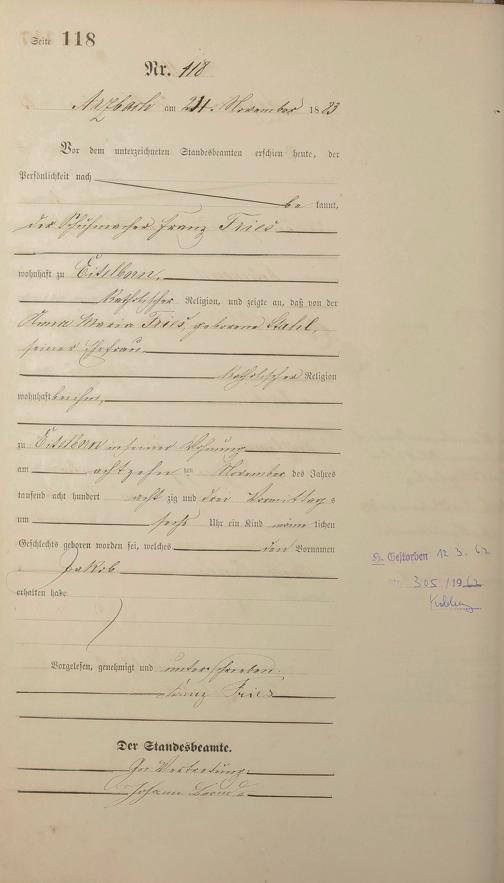 Seite 118
Nr. 118
Arzbach am 21. November 1883
Vor dem unterzeichneten Standesbeamten erschien heute, der
Persönlichkeit nach
be kannt,
der Schuhmacher Franz Fries
wohnhaft zu Eitelborn,
katholischer Religion, und zeigte an, daß von der
Anna Maria Fries, geborene Stahl,
seiner Ehefrau
katholischer Religion
wohnhaft bei ihm,
zu Eitelborn in seiner Wohnung
am achtzehn ten November des Jahres
tausend acht hundert acht zig und drei Vormittags
um sechs Uhr ein Kind männ lichen
Geschlechts geboren worden sei, welches den Vornamen
Jakob
erhalten habe
Vorgelesen, genehmigt und unterschrieben.
Franz Fries
Der Standesbeamte.
In Vertretung:
Johann
Gestorben 12.3.62
Nr. 305/1962
Koblenz